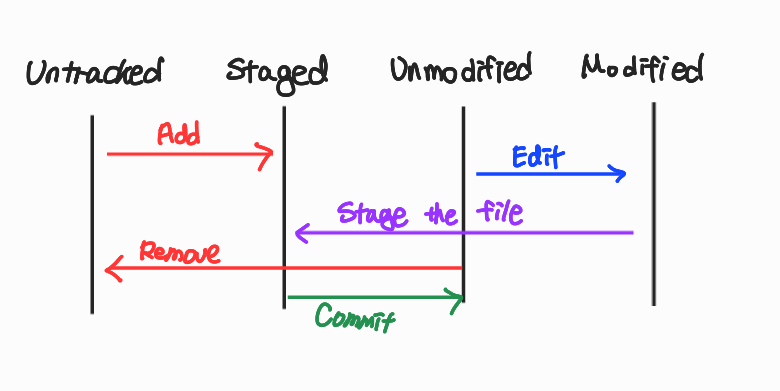 Untracked Staged Unmodified Modified
Add
Edit
Stage the file
Remove
Commit